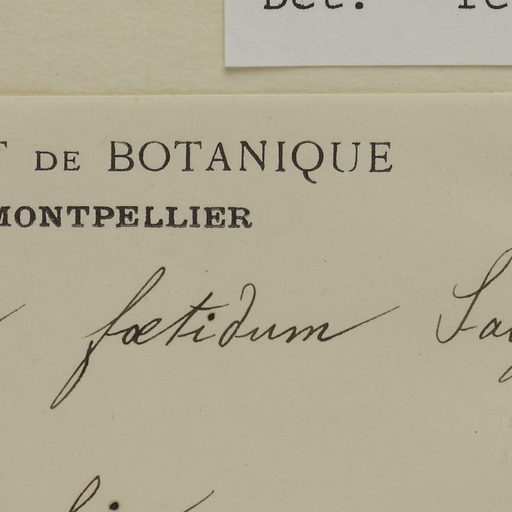 Det.
DE BOTANIQUE
MONTPELLIER
fœtidum